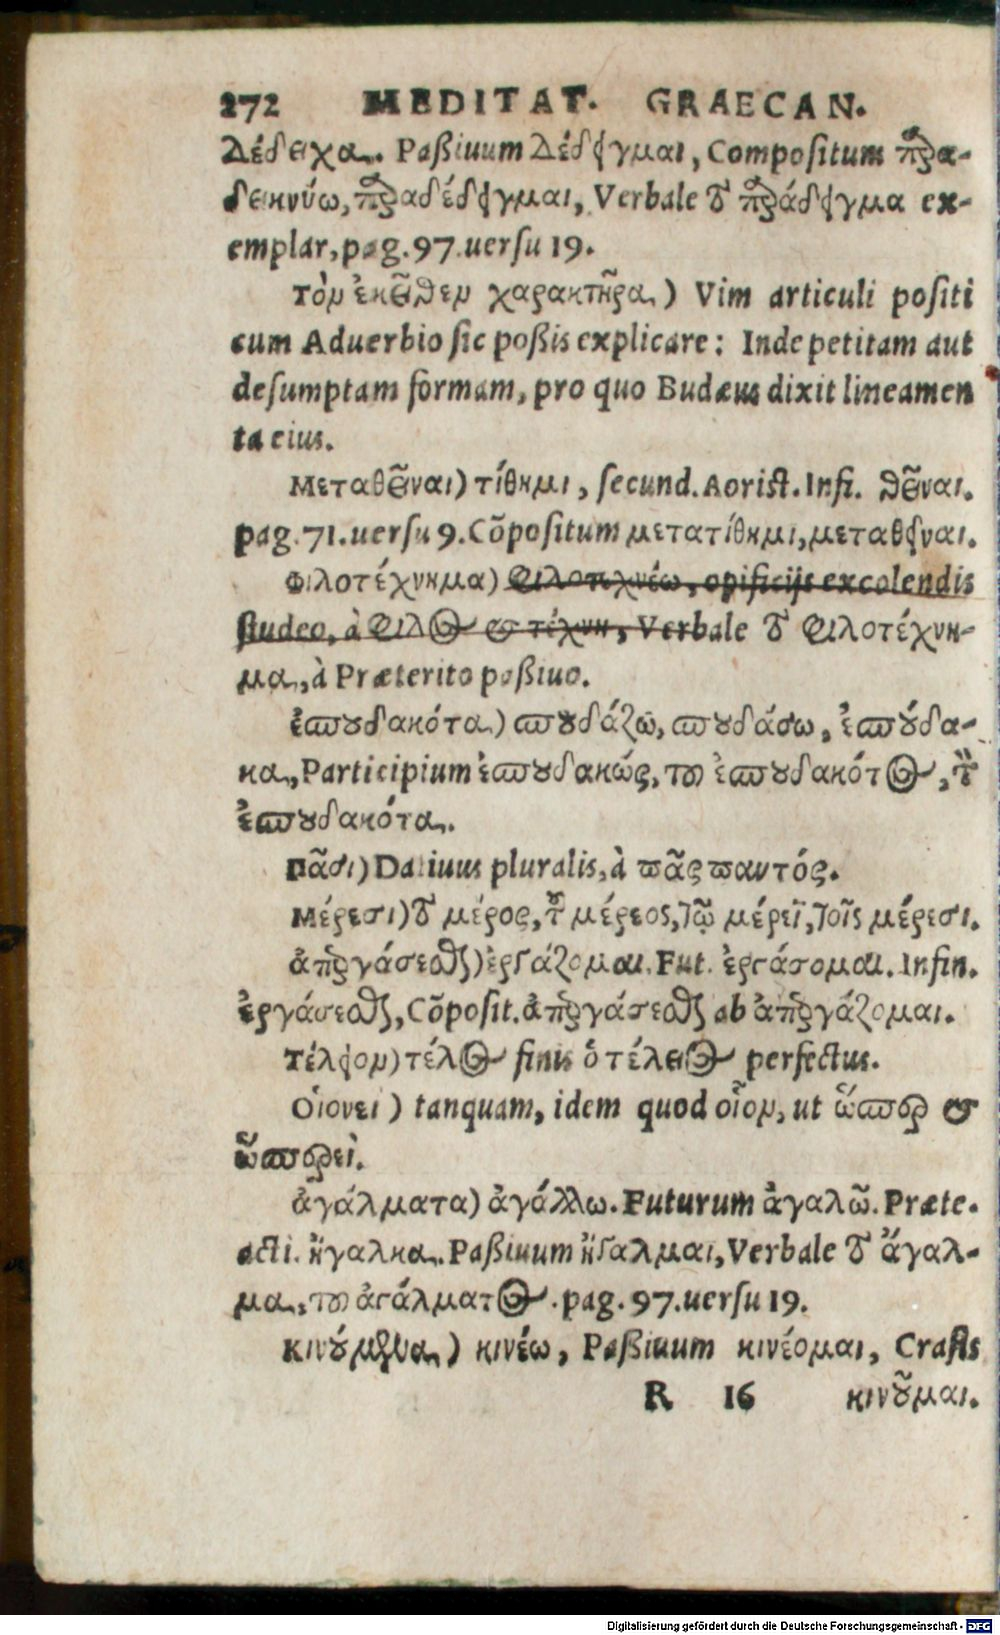 272 MEDITAT. GRAECAN.
Δέδειχα. Paßiuum Δέδειγμαι, Compositum παρα-
δεικνύω, παραδέδειγμαι, Verbale τὸ παράδειγμα ex-
emplar, pag. 97. uersu 19.
τὸν ἐκεῖθεν χαρακτῆρα) Vim articuli positi
cum Aduerbio sic poßis explicare: Inde petitam aut
desumptam formam, pro quo Budæus dixit lineamen
ta eius.
Μεταθεῖναι) τίθημι, secund. Aorist. Infi. θεῖναι.
pag. 71. uersu 9. Cõpositum μετατίθημι, μεταθεῖναι.
Φιλοτέχνημα) Φιλοτεχνέω, opificijs excolendis
studeo, à Φίλος & τέχνη, Verbale τὸ Φιλοτέχνη-
μα, à Præterito paßiuo.
ἐσπουδακότα) σπουδάζω, σπουδάσω, ἐσπούδα-
κα, Participium ἐσπουδακώς, τοῦ ἐσπουδακότος, τὸν
ἐσπουδακότα.
Πᾶσι) Datiuus pluralis, à πᾶς παντός.
Μέρεσι) τὸ μέρος, τοῦ μέρεος, τῷ μέρεϊ, τοῖς μέρεσι.
ἀπεργάσεσθαι) ἐργάζομαι. Fut. ἐργάσομαι. Infin.
ἐργάσεσθαι, Cõposit. ἀπεργάσεσθαι ab ἀπεργάζομαι.
Τέλειον) τέλος finis ὁ τέλειος perfectus.
Οἱονεὶ) tanquam, idem quod οἷον, ut ὥσπερ &
ὥσπερεὶ.
ἀγάλματα) ἀγάλλω. Futurum ἀγαλῶ. Præte.
acti. ἤγαλκα. Paßiuum ἤγαλμαι, Verbale τὸ ἄγαλ-
μα, τοῦ ἀγάλματος. pag. 97. uersu 19.
κινούμενα) κινέω, Paßiuum κινέομαι, Crasis
R 16 κινοῦμαι.
Digitalisierung gefördert durch die Deutsche Forschungsgemeinschaft - DFG